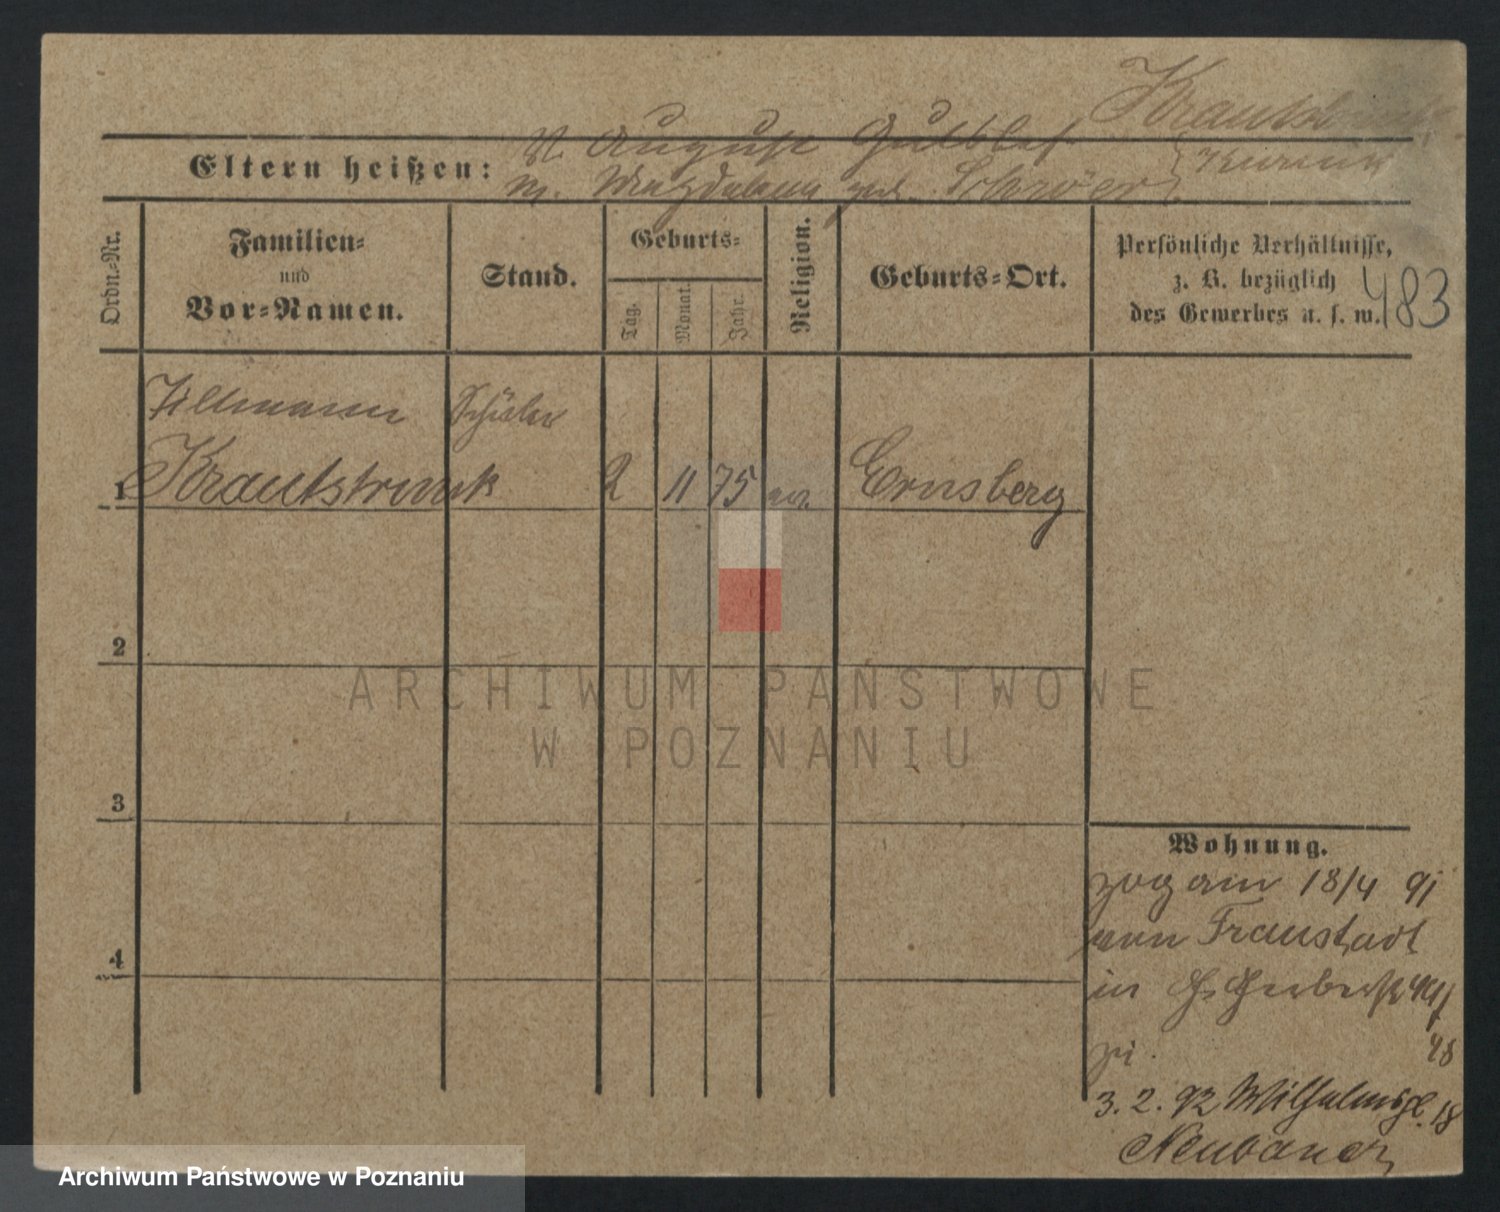 Krautstrunk
Eltern heißen: V. August Gottlob
M. Magdalena geb. Schröer
Ordn.-Nr.
Familien-
und
Vor-Namen.
Stand.
Geburts-
Tag.
Monat.
Jahr.
Religion.
Geburts-Ort.
Persönliche Verhältnisse,
z. B. bezüglich
des Gewerbes u. s. w.
483
Tillmann Schüler
1 Krautstrunk 2 11 75 ev. Ernsberg
2
3
4
Wohnung.
zog am 18/4 91
von Fraustadt
in Gr. Gerberstr
zu
48
3. 2. 92 Wilhelmspl. 18
Neubauer
ARCHIWUM PAŃSTWOWE
W POZNANIU
Archiwum Państwowe w Poznaniu